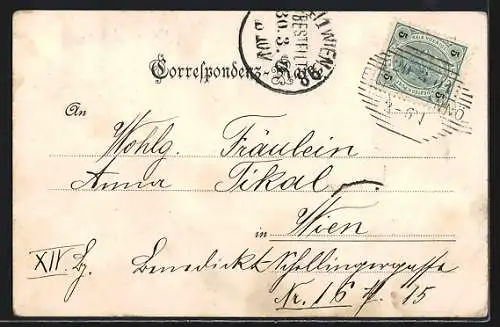 WIEN
BESTELLT
30.3.
5 5
5 5
Correspondenz-
An
Wohlg. Fräulein
Anna Tikal
in Wien
XIV. Bz. Benedikt-Schellingergasse
Nr. 16 15